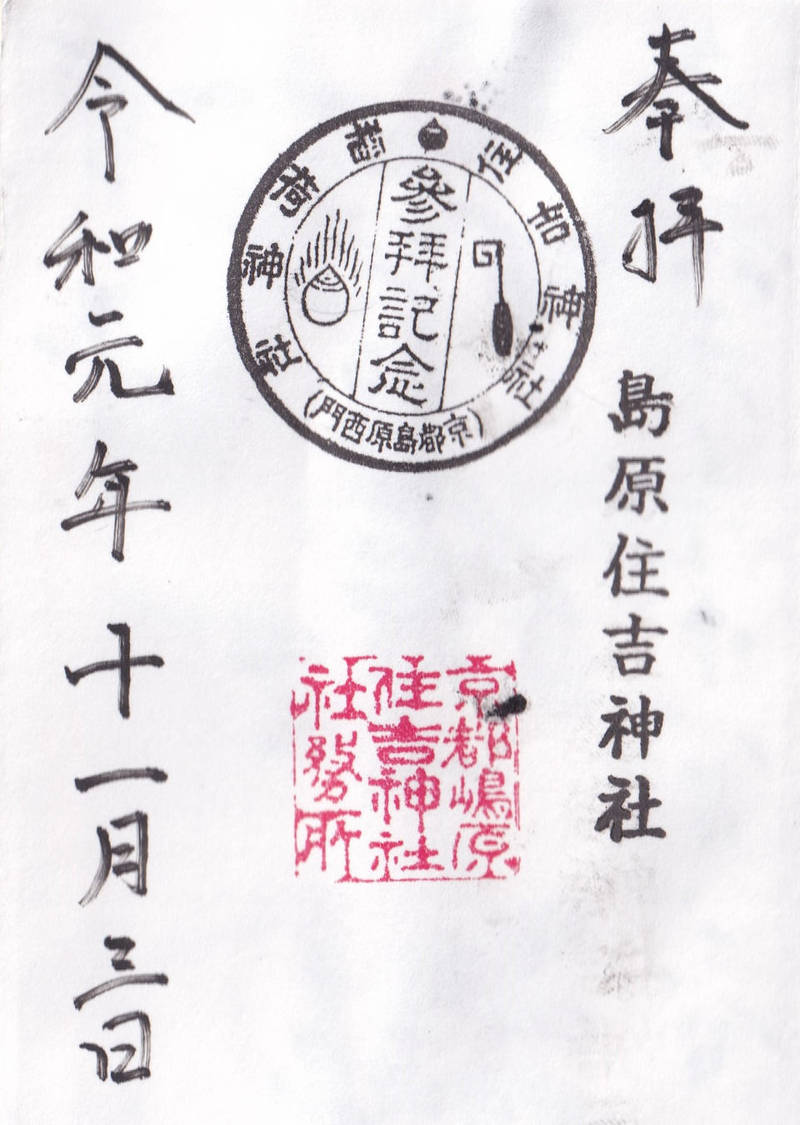 奉拝
島原住吉神社
住吉神社
稲荷神社
參拜記念
(京都島原西門)
京都嶋原
住吉神社
社務所
令和元年十一月三日